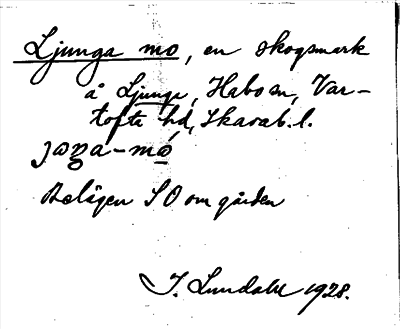 Ljunga mo, en skogsmark
å Ljunga, Habo sn, Var-
tofta hd, Skarab. l.
jaŋa-mó
Belägen SO om gården
I. Lundahl 1928.